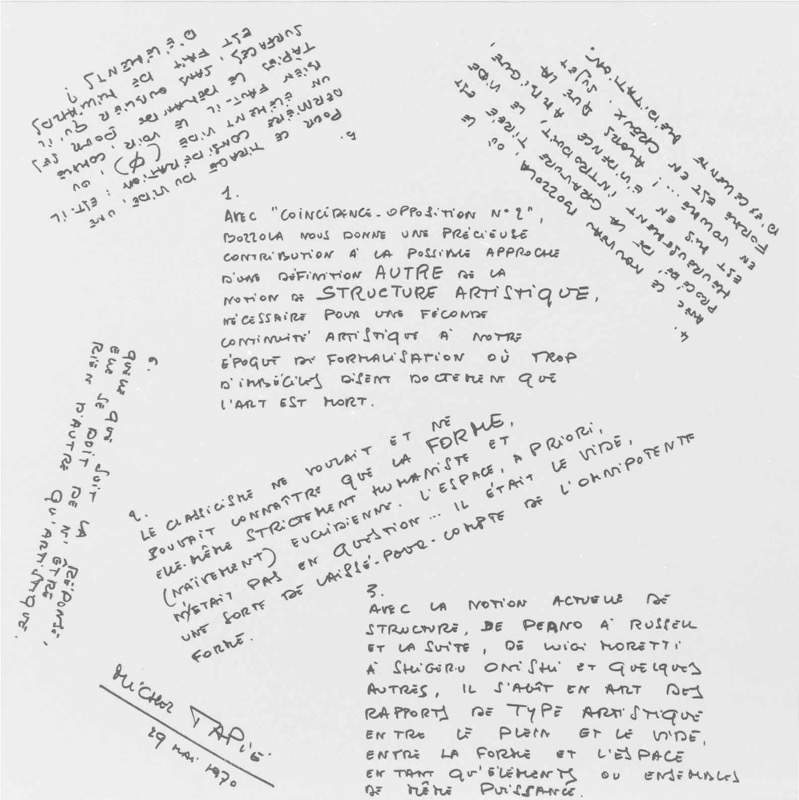 1.
AVEC "COÏNCIDENCE-OPPOSITION N°2",
BOZZOLA NOUS DONNE UNE PRÉCIEUSE
CONTRIBUTION À LA POSSIBLE APPROCHE
D'UNE DÉFINITION AUTRE DE LA
NOTION DE STRUCTURE ARTISTIQUE,
NÉCESSAIRE POUR UNE FÉCONDE
CONTINUITÉ ARTISTIQUE À NOTRE
ÉPOQUE DE FORMALISATION OÙ TROP
D'IMBÉCILES DISENT DOCTEMENT QUE
L'ART EST MORT.
2.
LE CLASSICISME NE VOULAIT ET NE
POUVAIT CONNAÎTRE QUE LA FORME,
ELLE-MÊME STRICTEMENT HUMANISTE ET
(NAÏVEMENT) EUCLIDIENNE. L'ESPACE, A PRIORI,
N'ÉTAIT PAS EN QUESTION... IL ÉTAIT LE VIDE,
UNE SORTE DE LAISSÉ-POUR-COMPTE DE L'OMNIPOTENTE
FORME.
3.
AVEC LA NOTION ACTUELLE DE
STRUCTURE, DE PEANO À RUSSELL
ET LA SUITE, DE LUIGI MORETTI
À SHIGERU ONISHI ET QUELQUES
AUTRES, IL S'AGÎT EN ART DES
RAPPORTS DE TYPE ARTISTIQUE
ENTRE LE PLEIN ET LE VIDE,
ENTRE LA FORME ET L'ESPACE
EN TANT QU'ÉLÉMENTS OU ENSEMBLES
DE MÊME PUISSANCE.
4.
AVEC CE NOUVEAU BOZZOLA, OÙ LE
PROCÉDÉ DE LA GRAVURE TIRÉE EST
HEUREUSEMENT INTRODUIT, LE VIDE
EST MIS EN ÉVIDENCE
VOLUME ...! ALORS QUE LA
FORME EST EN CREUX. SUJET
D'EXCELLENTE MÉDITATION.
5.
POUR CE TIRAGE DU VIDE, UNE
DERNIÈRE CONSIDÉRATION : EST-IL
UN ÉLÉMENT VIDE (φ), OU
BIEN FAUT-IL LE VOIR, COMME
TAPIES LE DEMANDE POUR SES
SURFACES, SANS OUBLIER QU'IL
EST FAIT DE MILLIARDS
D'ÉLÉMENTS ?
6.
QUELLE QUE SOIT LA RÉPONSE,
ELLE SE DOIT DE N'ÊTRE
RIEN D'AUTRE QU'ARTISTIQUE.
MICHEL TAPIÉ
29 MAI 1970